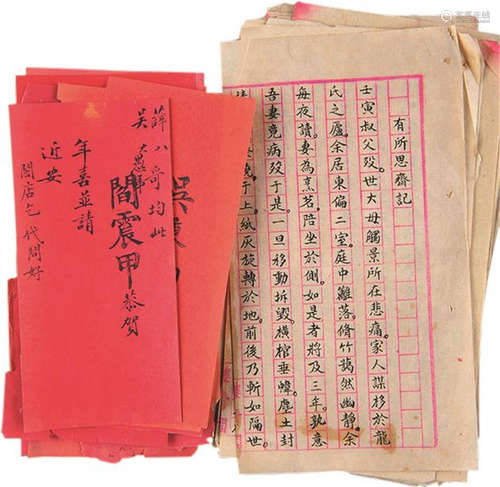 薛八哥均此
吳
愚弟
閻震甲恭賀
年喜並請
近安
閤店乞代問好
吳
有所思齋記
壬寅叔父歿。世大母觸景所在悲痛。家人謀移於龍
氏之廬。余居東偏二室。庭中離落。脩竹藹然幽靜。余
每夜讀。妻為烹茗。陪坐於側。如是者將及三年。孰意
吾妻竟病歿。于是一旦移動拆毀。橫棺垂幃。塵土封
于上。紙灰旋轉於地。前後乃斬如隔世。